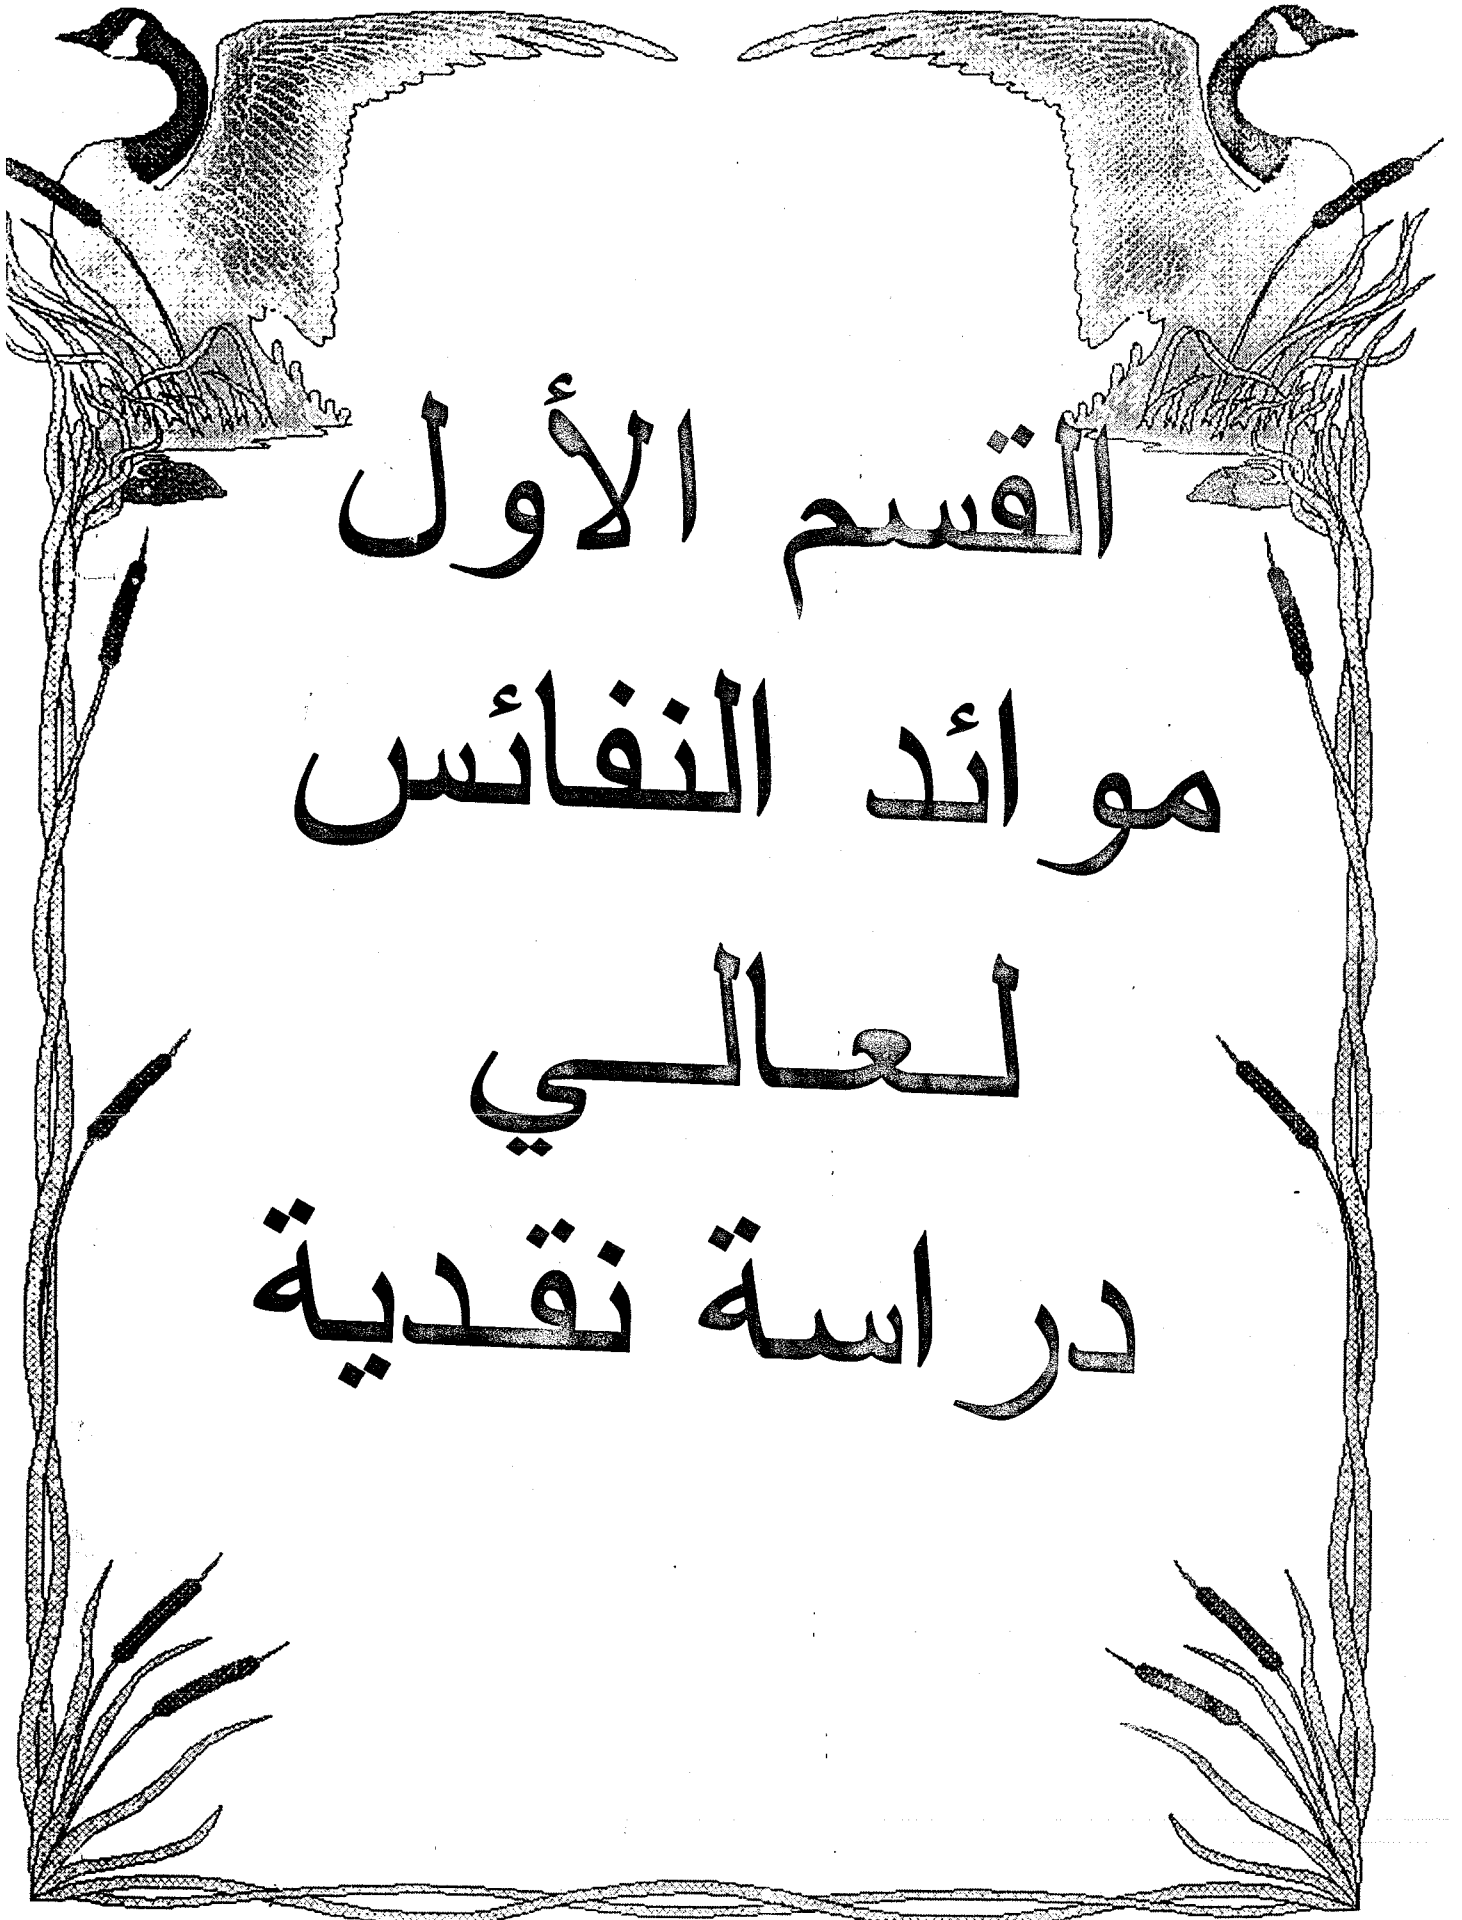 القسم الأول
موائد النفائس
لعالي
دراسة نقدية